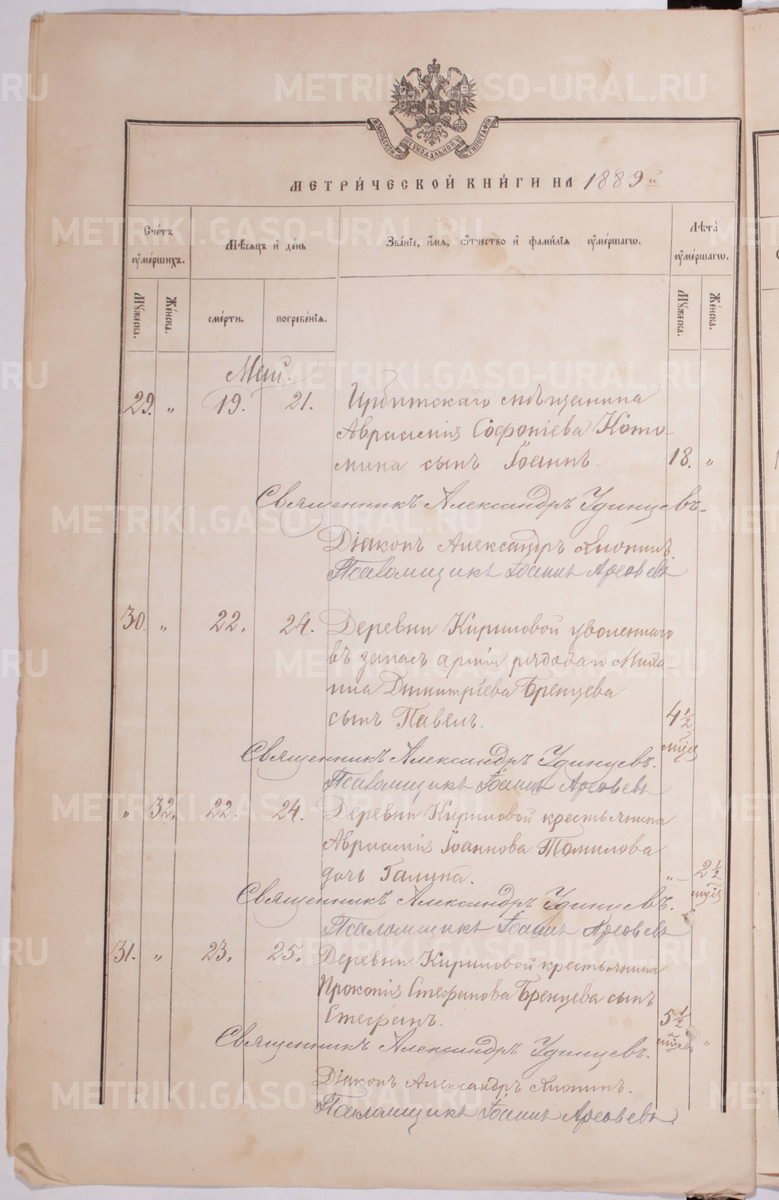 METRIKI.GASO-URAL.RU
МЕТРИ́ЧЕСКОЙ КНИ́ГИ НА 1889й
Сче́тъ ᲂуме́ршихъ.
Мѣ́сяцъ и де́нь
Зва́нїе, и́мя, ѻ҆́тчество и фами́лїя ᲂуме́ршагѡ.
Лѣ́та ᲂуме́ршагѡ.
Му́жеска.
Же́нска.
сме́рти.
погребе́нїя.
Му́жеска.
Же́нска.
Май.
29. „ 19. 21. Ирбитскаго мѣщанина
Авраамія Софоніева
сынъ Іоаннъ. 18. „
Священникъ Александръ Удинцевъ.
Діаконъ Александръ
Псаломщикъ Іоаннъ
30. „ 22. 24. Деревни Кириловой уволеннаго
въ запасъ арміи рядоваго Миха-
ила Димитріева Бренцева
сынъ Павелъ. 4 ½ мцев
Священникъ Александръ Удинцевъ.
Псаломщикъ Іоаннъ
„ 32. 22. 24. Деревни Кириловой крестьянина
Авраамія Іоаннова Томилова
дочь Галина. „ 2 ½ мцев
Священникъ Александръ Удинцевъ.
Псаломщикъ Іоаннъ
31. „ 23. 25. Деревни Кириловой крестьянина
Прокопія Стефанова Бренцева сынъ
Стефанъ. 5 ½ мцев „
Священникъ Александръ Удинцевъ.
Діаконъ Александръ
Псаломщикъ Іоаннъ